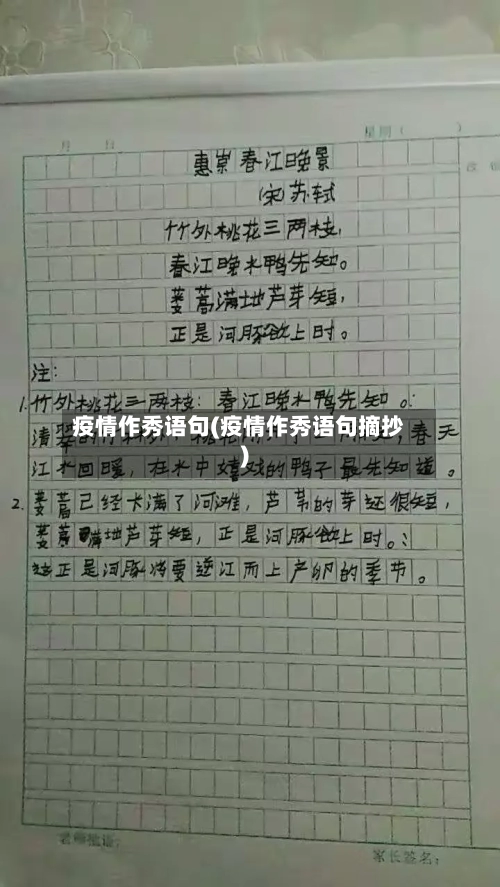 月 日 星期( )
惠崇春江晚景
(宋)苏轼
竹外桃花三两枝,
春江晚水鸭先知。
蒌蒿满地芦芽短,
正是河豚欲上时。
注:
1.竹外桃花三两枝:春江晚水鸭先知。:
疫情作秀语句(疫情作秀语句摘抄
)
春天
江水回暖,在水中嬉戏的鸭子最先知道。
2.蒌蒿已经长满了河滩,芦苇的芽还很短,
蒌蒿满地芦芽短,正是河豚欲上时。:
这正是河豚将要逆江而上产卵的季节。
老师批语:
家长签名: